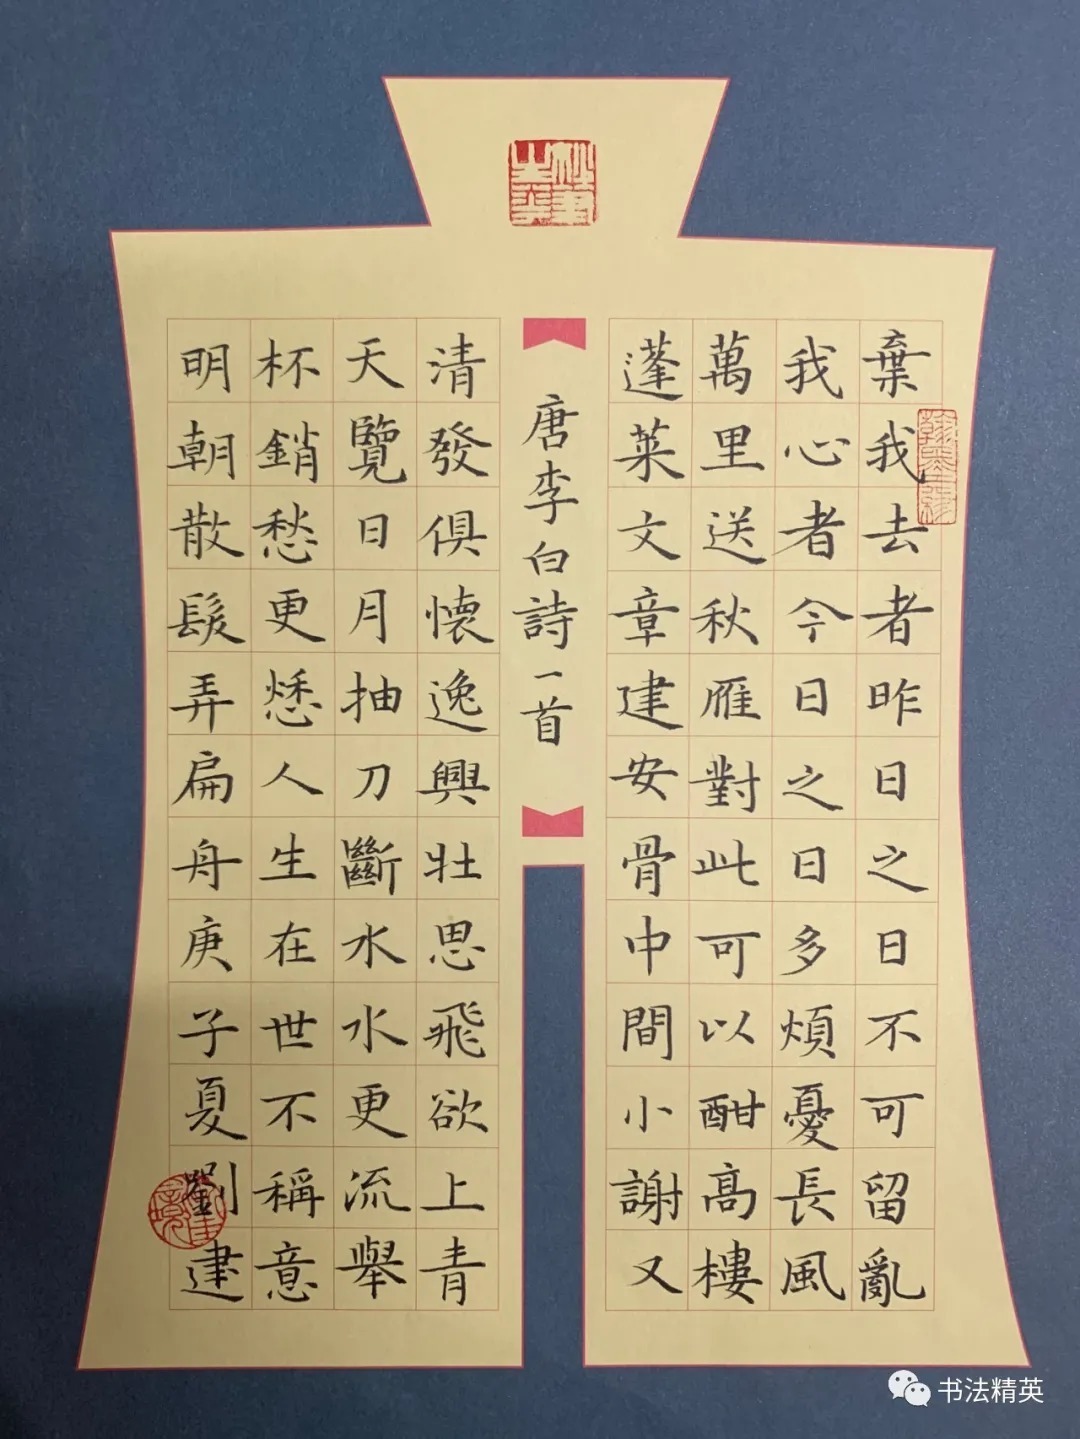 棄我去者昨日之日不可留亂
我心者今日之日多煩憂長風
萬里送秋雁對此可以酣高樓
蓬萊文章建安骨中間小謝又
唐李白詩一首
清發俱懷逸興壯思飛欲上青
天覽日月抽刀斷水水更流舉
杯銷愁愁更愁人生在世不稱意
明朝散髮弄扁舟庚子夏劉建
书法精英